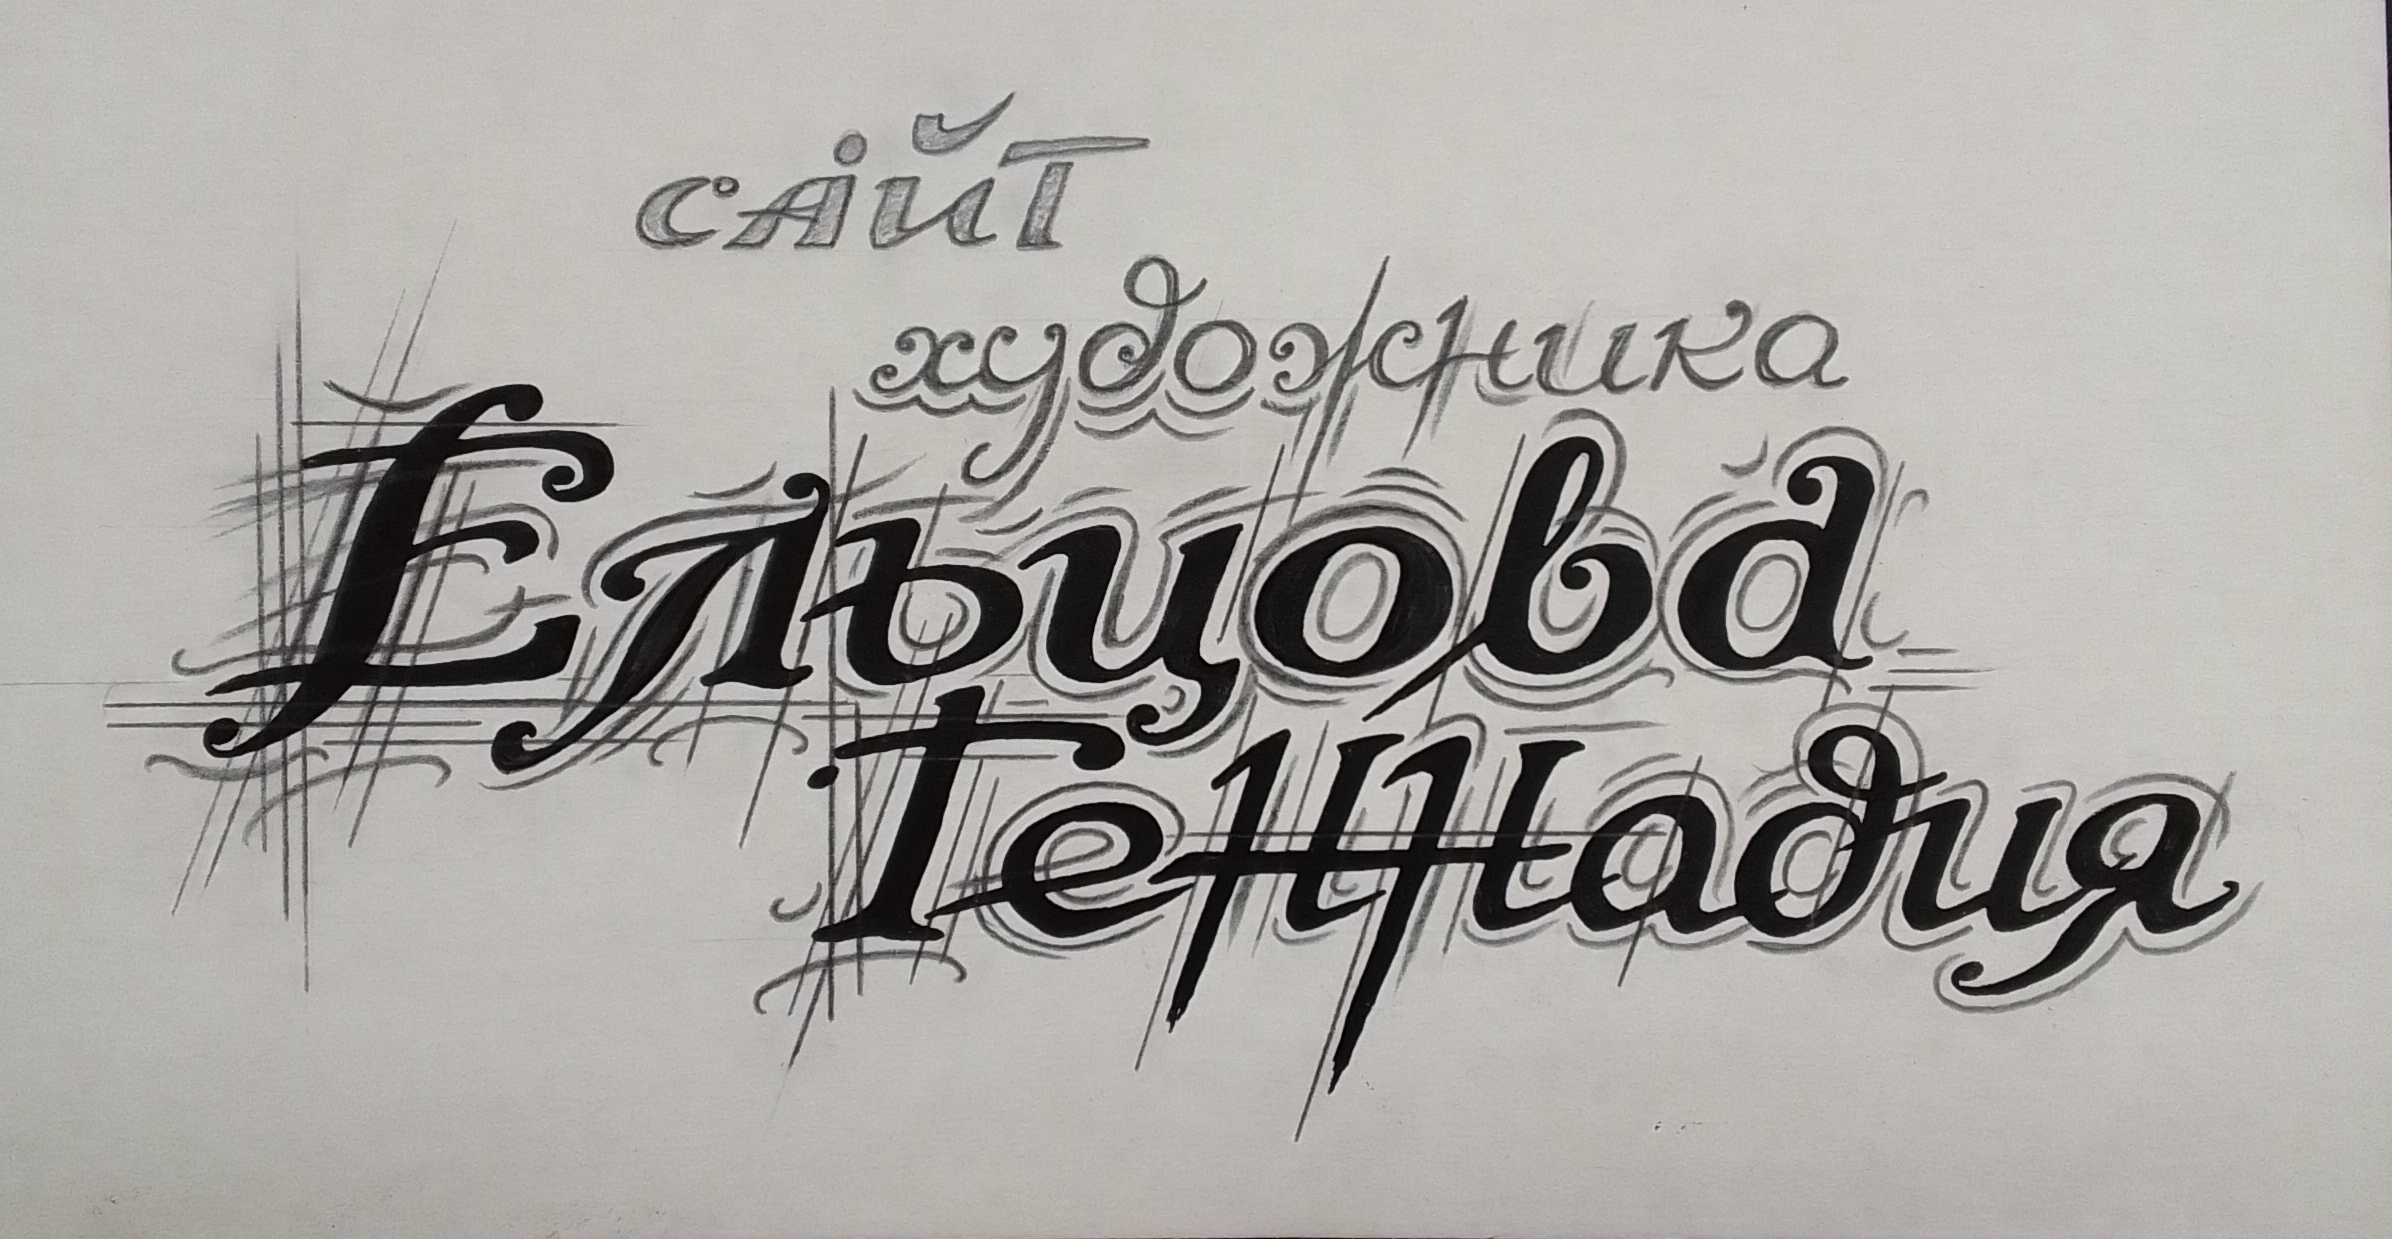 сайт
художника
Ельцова
Геннадия